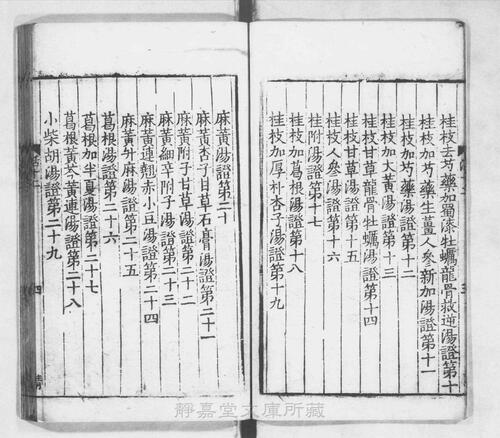 桂枝去芍藥加蜀漆牡蠣龍骨救逆湯證第十
桂枝加芍藥生薑人參新加湯證第十一
桂枝加芍藥湯證第十二
桂枝加大黃湯證第十三
桂枝甘草龍骨牡蠣湯證第十四
桂枝甘草湯證第十五
桂枝人參湯證第十六
桂附湯證第十七
桂枝加葛根湯證第十八
桂枝加厚朴杏子湯證第十九
麻黃湯證第二十
麻黃杏子甘草石膏湯證第二十一
麻黃附子甘草湯證第二十二
麻黃細辛附子湯證第二十三
麻黃連翹赤小豆湯證第二十四
麻黃升麻湯證第二十五
葛根湯證第二十六
葛根加半夏湯證第二十七
葛根黃芩黃連湯證第二十八
小柴胡湯證第二十九
四
靜嘉堂文庫所藏